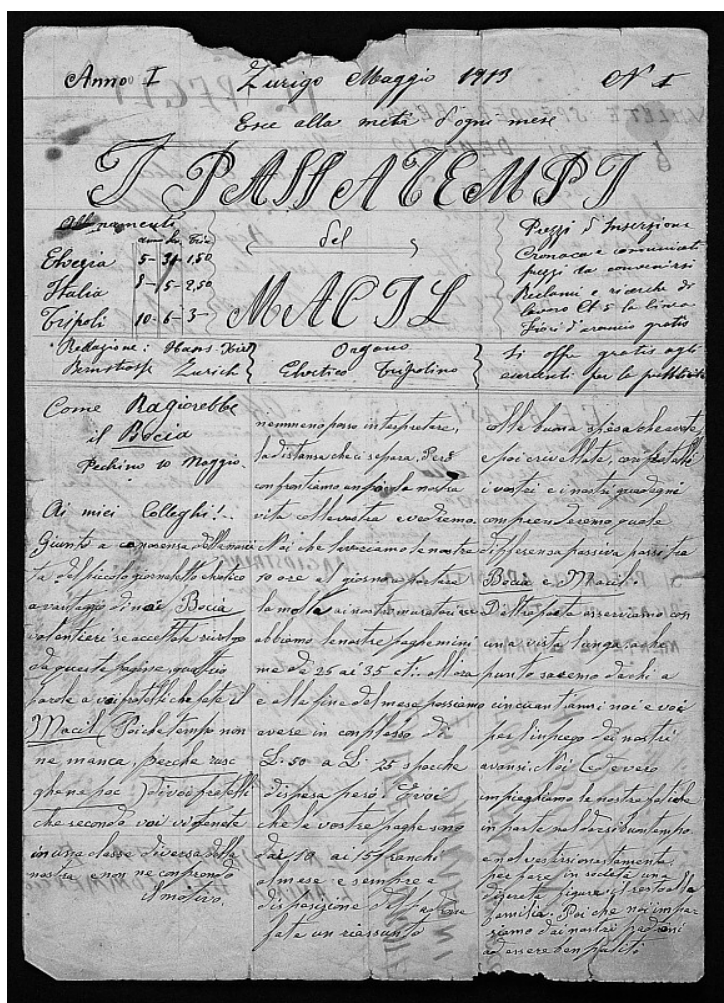 Anno I Zurigo Maggio 1913 N 1
Esce alla metà d'ogni mese
I PASSATEMPI
del
MACIL
Abbonamenti
anno
Elvezia 5- 3- 1,50
Italia 8- 5- 2,50
Tripoli 10- 6- 3-
Prezzi d'Inserzione
Cronaca e comunicati
prezzi da convenirsi
Reclami e ricerche di
lavoro Ct 5 la linea
Fiori d'arancio gratis
Redazione: Hans
Zurich
Organo
Elvetico Tripolino
Si offre gratis agli
esercenti per la pubblicità
Come Ragiorebbe
il Bocia
Pechino 10 Maggio.
Ai miei Colleghi!..
Giunto a conosensa della
ta del piccolo giornaletto elvetico
a vantaggio di noi Bocia
volentieri se accettate rivolgo
da queste pagine, quattro
parole a voi fratelli che fate il
Macil. Poiche tempo non
ne manca, perche
di voi fratelli
che secondo voi vi tenete
in ussa classe diversa della
nostra e non ne comprendo
il motivo,
nemmeno posso interpretare,
la distansa che ci separa. Però
confrontiamo un piccola nostra
vita colla vostra e vedremo.
Noi che lavoriamo le nostre
10 ore al giorno, portare
la molta ai nostri muratori se
abbiamo le nostre paghe mini
me di 25 ai 35 ct. all'ora
e alla fine del mese possiamo
avere in complesso di
L. 50 a L. 75
dispesa però. E voi
che le vostre paghe sono
dai 10 ai 15 franchi
al mese e sempre a
disposizione
fate un riassunto
colle buona spesa che avete
e poi crivellate, confrontate
i vostri e i nostri guadagni
comprenderemo quale
differensa passiva passi tra
Bocia e Macil.
D'altra parte osserviamo con
una vista lunga, a che
punto saremo da chi a
cinciant'anni noi e voi
per l'inpiego dei nostri
avansi. Noi
impieghiamo le nostre fatiche
in parte nel darsi buon tempo
e nel vestirsi onestamente
per fare in società una
discreta figura, il resto alla
familia. Poi che noi impar
riamo dai nostri padroni
ad essere ben